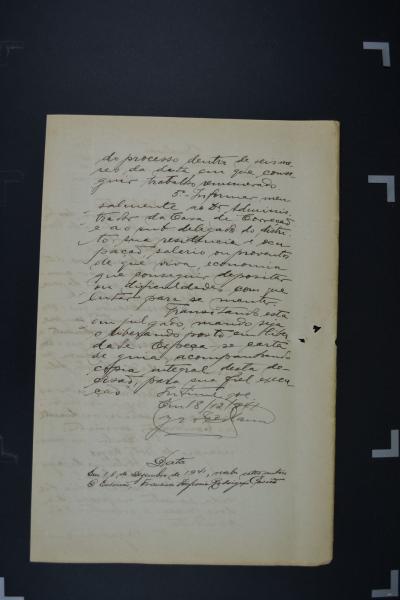 do processo dentro de seis me-
zes da data em que conse-
guir trabalho remunerado
5º- Informar men-
salmente ao Dr. Adminis-
trador da Casa de Correção
e ao sub delegado do distri-
to, sua residencia e ocu-
pação, salario ou proventos
de que viva, economia
que conseguir depositar
ou dificuldades com que
lutar para se manter.
Transitando esta
em julgado, mando seja
o liberando posto em liber-
dade. Expeça-se carta
de guia, acompanhando
copia integral desta de-
cisão, para sua fiel execu-
ção. Intime-se.
Em 18/12/941
Data
Em 18 de Dezembro de 1941, recebi estes autos
O Escrivão, Francisco